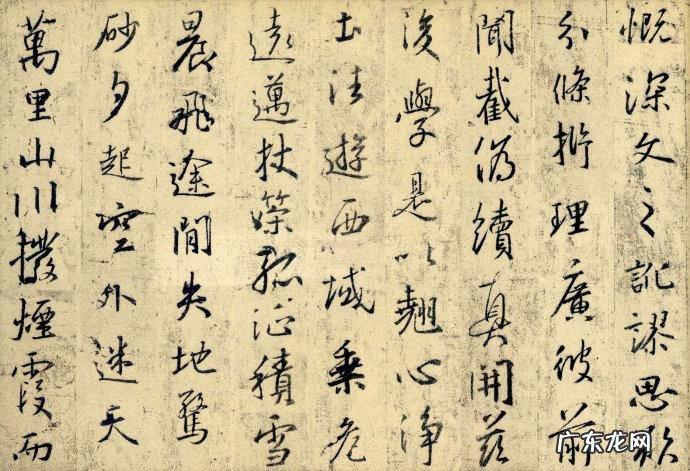 慨深文之訛謬思欲
分條析理廣彼前
聞截偽續真開茲
後學是以翹心淨
土法遊西域乗危
遠邁杖策孤征積雪
晨飛途間失地驚
砂夕起空外迷天
萬里山川撥煙霞而
广东龙网